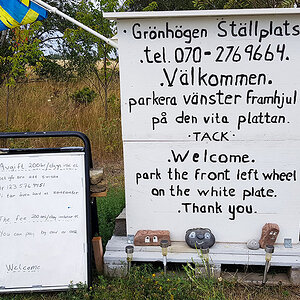 Grönhögen Ställplats
.tel. 070-2769664.
.Välkommen.
parkera vänster framhjul
på den vita plattan.
·TACK·
.Welcome.
park the front left wheel
on the white plate.
.Thank you.
Avgift 200
The fee 200
You can pay by
Welcome